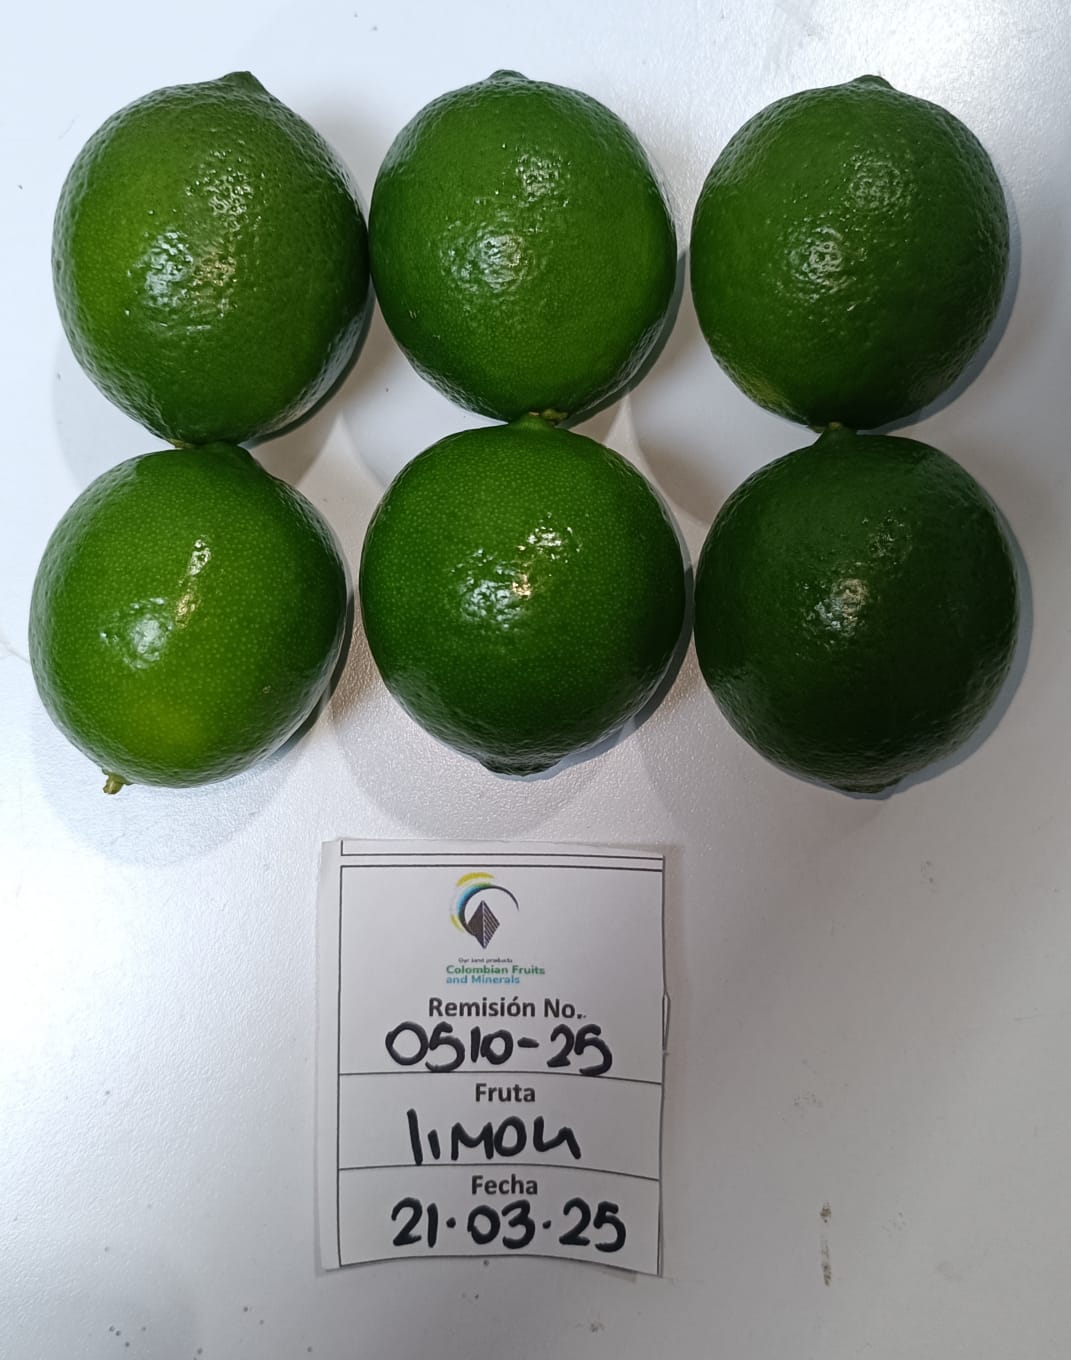 Our land products
Colombian Fruits
and Minerals
Remisión No..
0510-25
Fruta
limon
Fecha
21.03.25